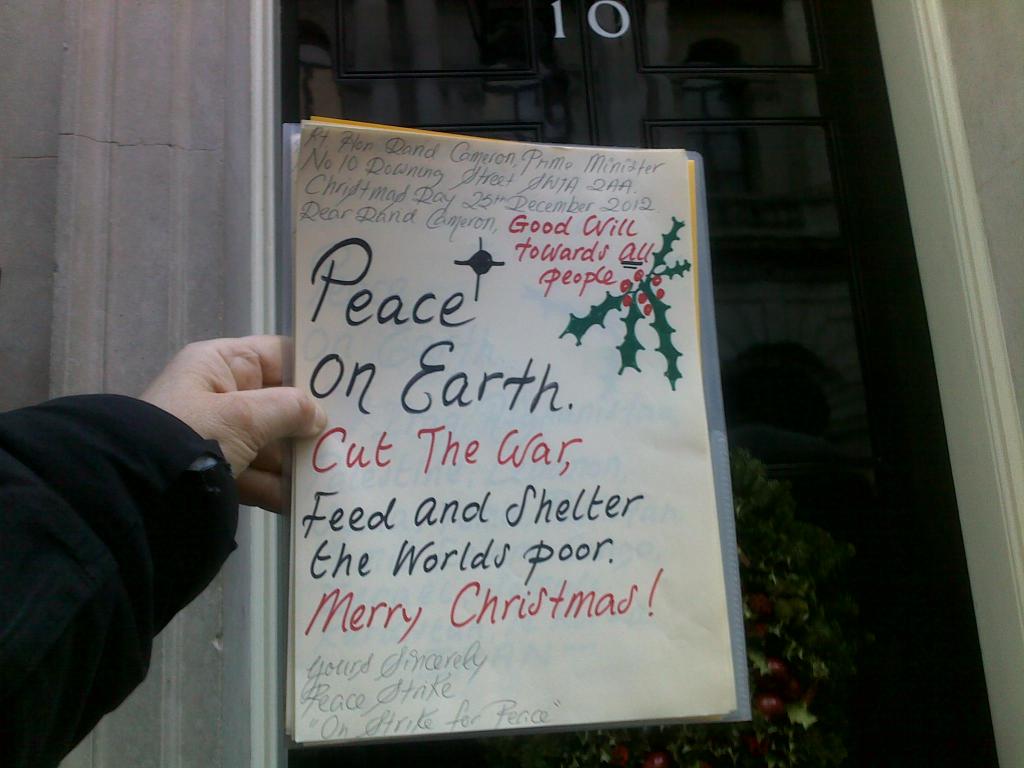 10
Rt Hon David Cameron, Prime Minister
No 10 Downing Street SW1A 2AA.
Christmas Day 25th December 2012.
Dear David Cameron,
Good Will
towards all
people
Peace
on Earth.
Cut The War,
Feed and Shelter
the Worlds poor.
Merry Christmas!
Yours Sincerely
Peace Strike
"On Strike for Peace"